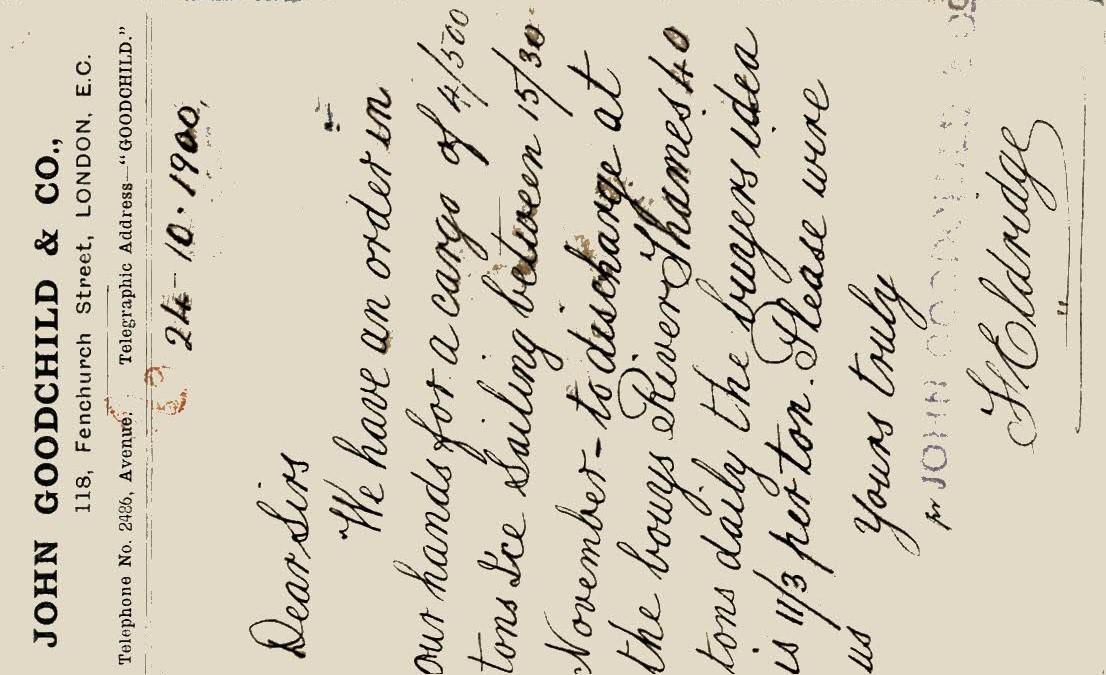 JOHN GOODCHILD & CO.,
118, Fenchurch Street, LONDON, E.C.
Telephone No. 2486, Avenue. Telegraphic Address—"GOODCHILD."
24-10-1900,
Dear Sirs
We have an order in
our hands for a cargo of 4/500
tons Ice Sailing between 15/30
November - to discharge at
the bouys River Thames 40
tons daily the buyers idea
is 11/3 per ton. Please wire
us
Yours truly
for JOHN GOODCHILD & CO